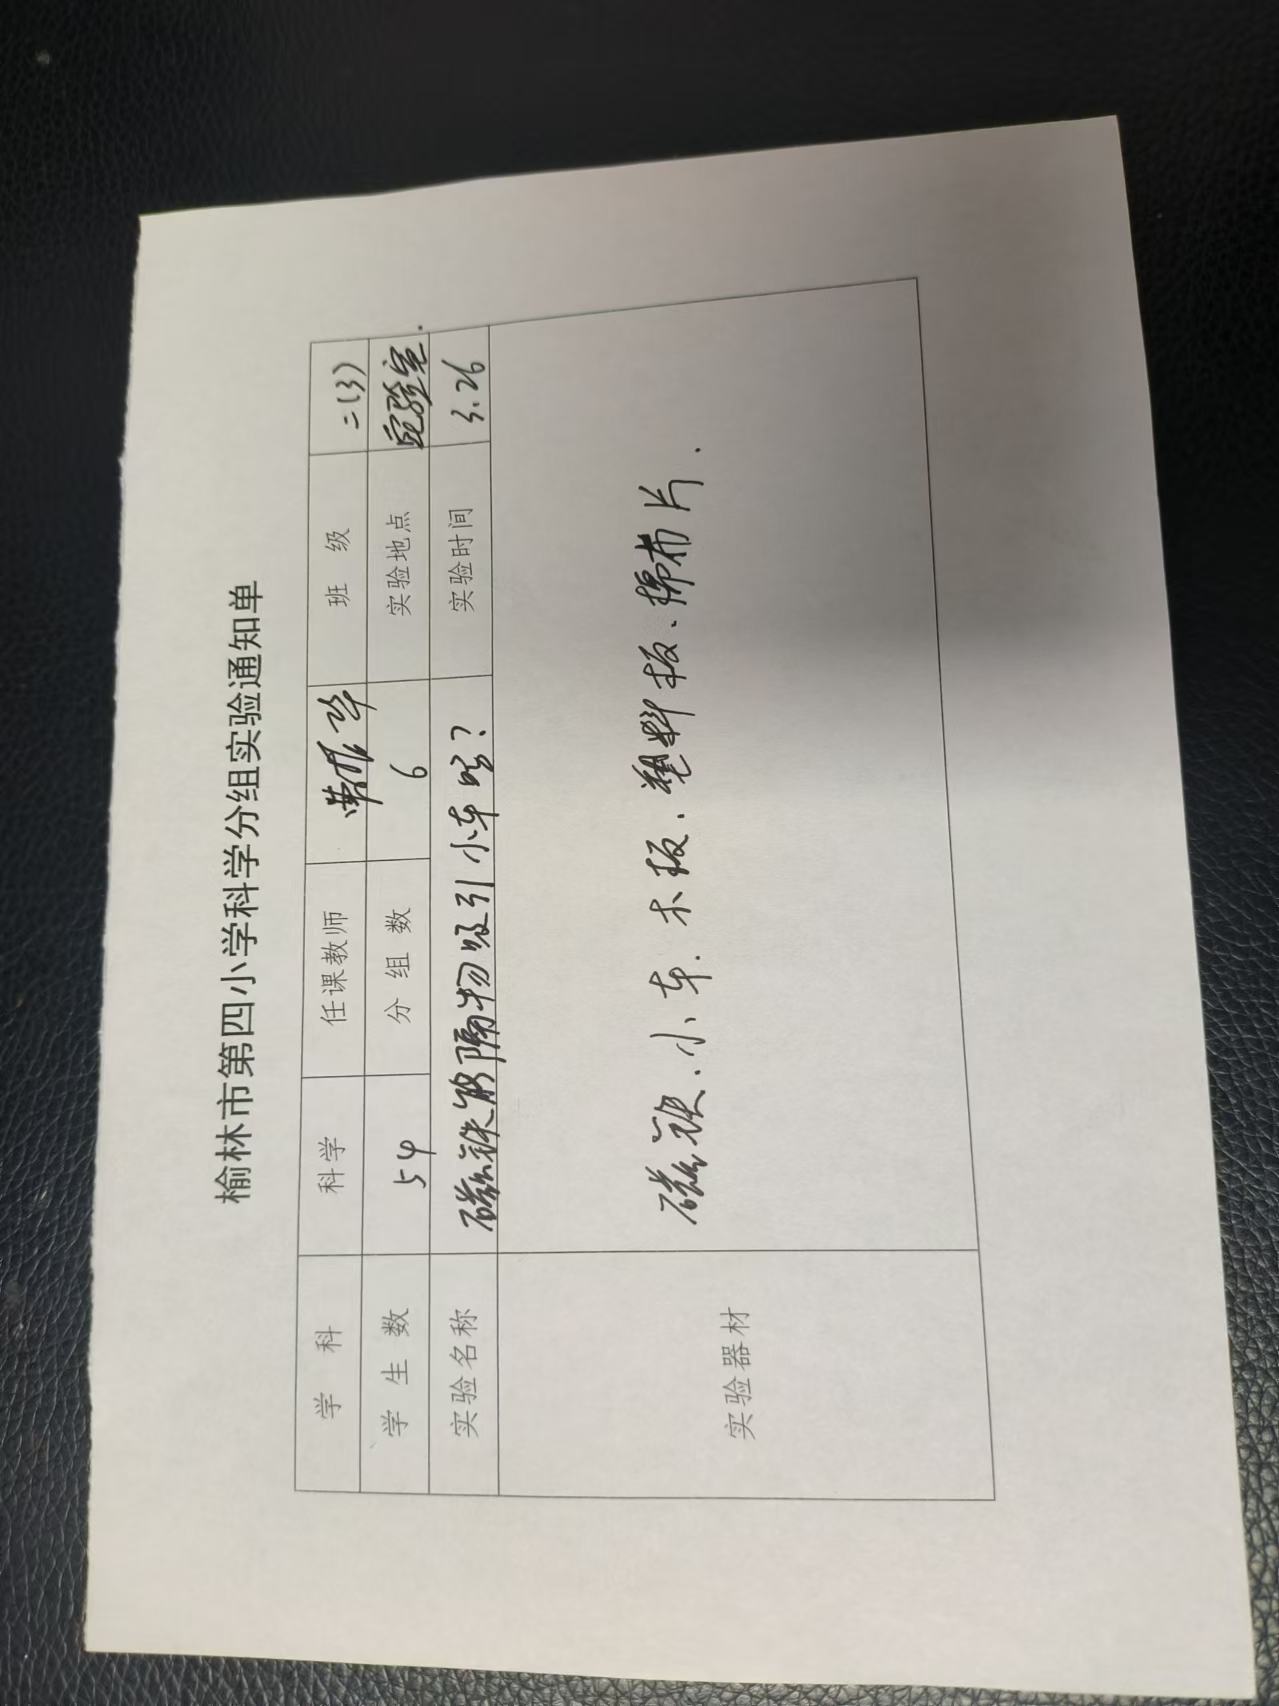 榆林市第四小学科学分组实验通知单
学 科 科学 任课教师 班 级 二(3)
学 生 数 54 分 组 数 6 实验地点 实验室.
实验名称 磁铁能隔物吸引小车吗? 实验时间 3.26
实验器材 磁铁、小车、木板、塑料板、棉布片.